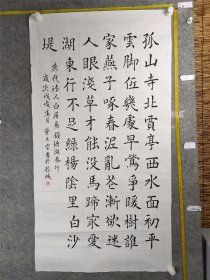 孤山寺北賈亭西水面初平
雲脚低幾處早鶯爭暖樹誰
家燕子啄春泥亂花漸欲迷
人眼淺草才能没馬蹄最愛
湖東行不足綠楊陰里白沙
堤
唐代詩人白居易錢塘湖春行